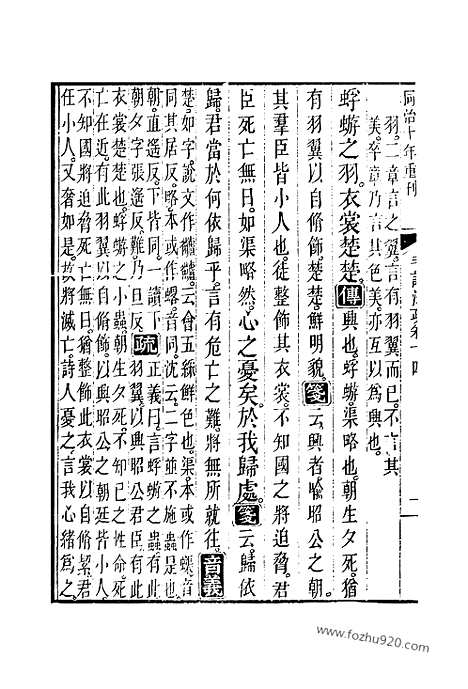 同治十年重刊
毛詩注疏卷十四
二
羽二章言之翼言有羽翼而已不言其
美卒章乃言其色美亦互以爲興也
蜉蝣之羽衣裳楚楚傳興也蜉蝣渠略也朝生夕死猶
有羽翼以自脩飾楚楚鮮明貌箋云興者喻昭公之朝
其羣臣皆小人也徒整飾其衣裳不知國之將迫脅君
臣死亡無日如渠略然心之憂矣於我歸處箋云歸依
歸君當於何依歸乎言有危亡之難將無所就往音義
楚如字說文作䊏䊏云會五綵鮮色也渠本或作蟝音
同其居反略本或作𧎾音同沈云二字並不施蟲是也
朝直遙反下皆同一讀下
朝夕字張遙反難乃旦反疏正義曰言蜉蝣之蟲有此
羽翼以興昭公君臣有此
衣裳楚楚也蜉蝣之小蟲朝生夕死不知已之性命死
亡在近有此羽翼以自脩飾以興昭公之朝廷皆小人
不知國將迫脅死亡無日猶整飾此衣裳以自脩絜君
任小人又奢如是故將滅亡詩人憂之言我心緒爲之
www.fozhu920.com